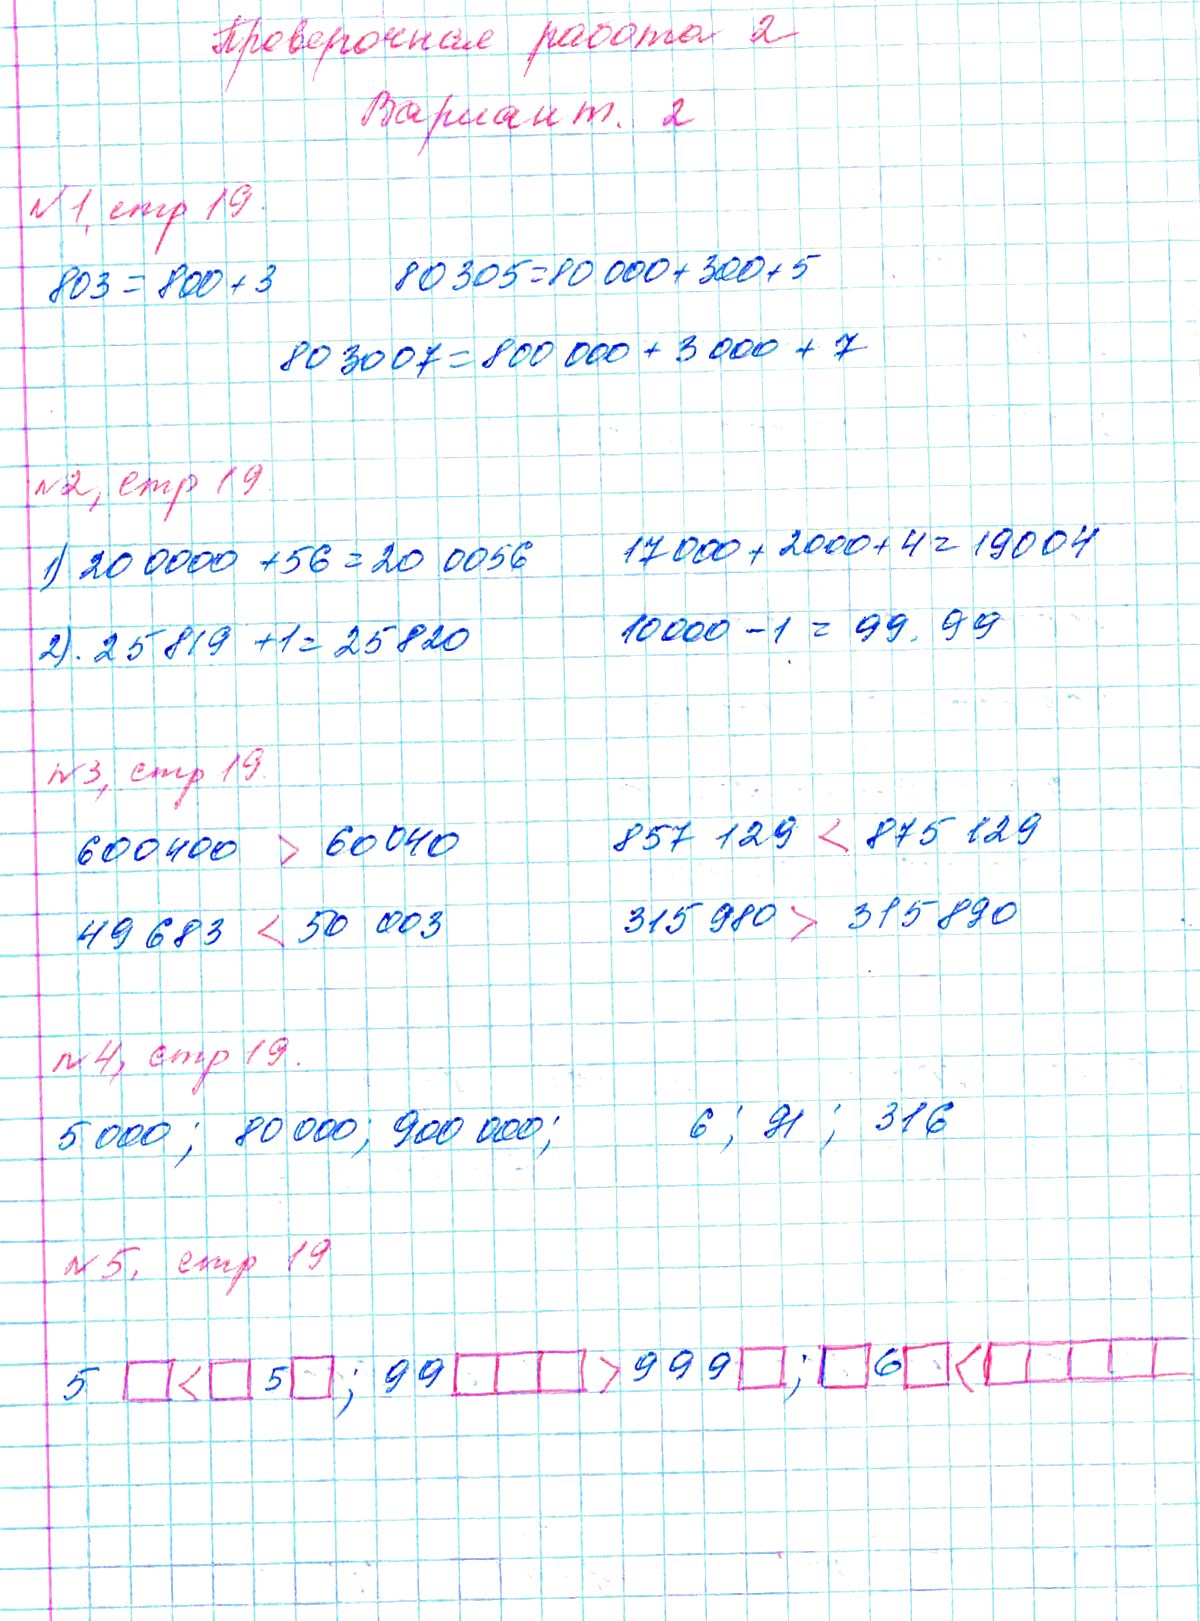 Проверочная работа 2
Вариант. 2
№1, стр 19.
803 = 800 + 3 80305 = 80 000 + 300 + 5
803007 = 800 000 + 3 000 + 7
№2, стр 19.
1) 20 0000 + 56 = 20 0056 17000 + 2000 + 4 = 19004
2). 25819 + 1 = 25820 10000 - 1 = 99.99
№3, стр 19.
600400 > 60040 857 129 < 875 129
49683 < 50 003 315 980 > 315890
№4, стр 19.
5000; 80000; 900 000; 6; 91; 316
№5, стр 19
5 □ < □ 5 □; 99 □□□ > 999 □; □ 6 □ < □□□□□